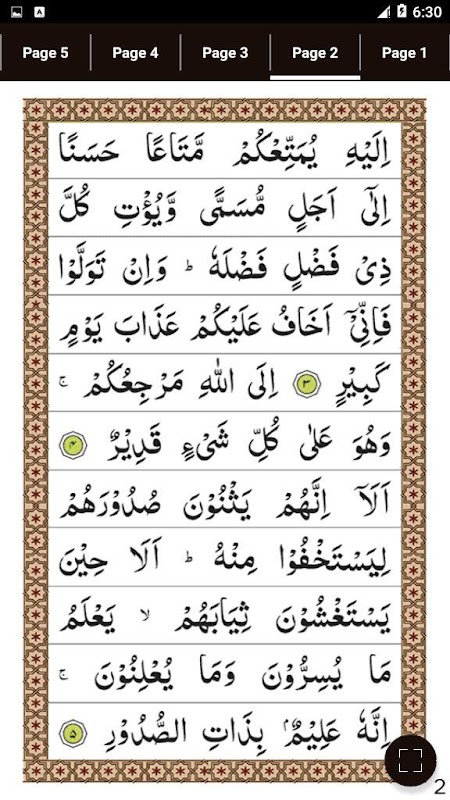 A 6:30
Page 5 Page 4 Page 3 Page 2 Page 1
اِلَيْهِ يُمَتِّعْكُمْ مَّتَاعًا حَسَنًا
اِلٰٓى اَجَلٍ مُّسَمًّى وَّيُؤْتِ كُلَّ
ذِيْ فَضْلٍ فَضْلَهٗ ؕ وَاِنْ تَوَلَّوْا
فَاِنِّيْٓ اَخَافُ عَلَيْكُمْ عَذَابَ يَوْمٍ
كَبِيْرٍ ۝۳ اِلَى اللّٰهِ مَرْجِعُكُمْ ۚ
وَهُوَ عَلٰى كُلِّ شَيْءٍ قَدِيْرٌ ۝۴
اَلَآ اِنَّهُمْ يَثْنُوْنَ صُدُوْرَهُمْ
لِيَسْتَخْفُوْا مِنْهُ ؕ اَلَا حِيْنَ
يَسْتَغْشُوْنَ ثِيَابَهُمْ ۙ يَعْلَمُ
مَا يُسِرُّوْنَ وَمَا يُعْلِنُوْنَ ۚ
اِنَّهٗ عَلِيْمٌۢ بِذَاتِ الصُّدُوْرِ ۝۵
2